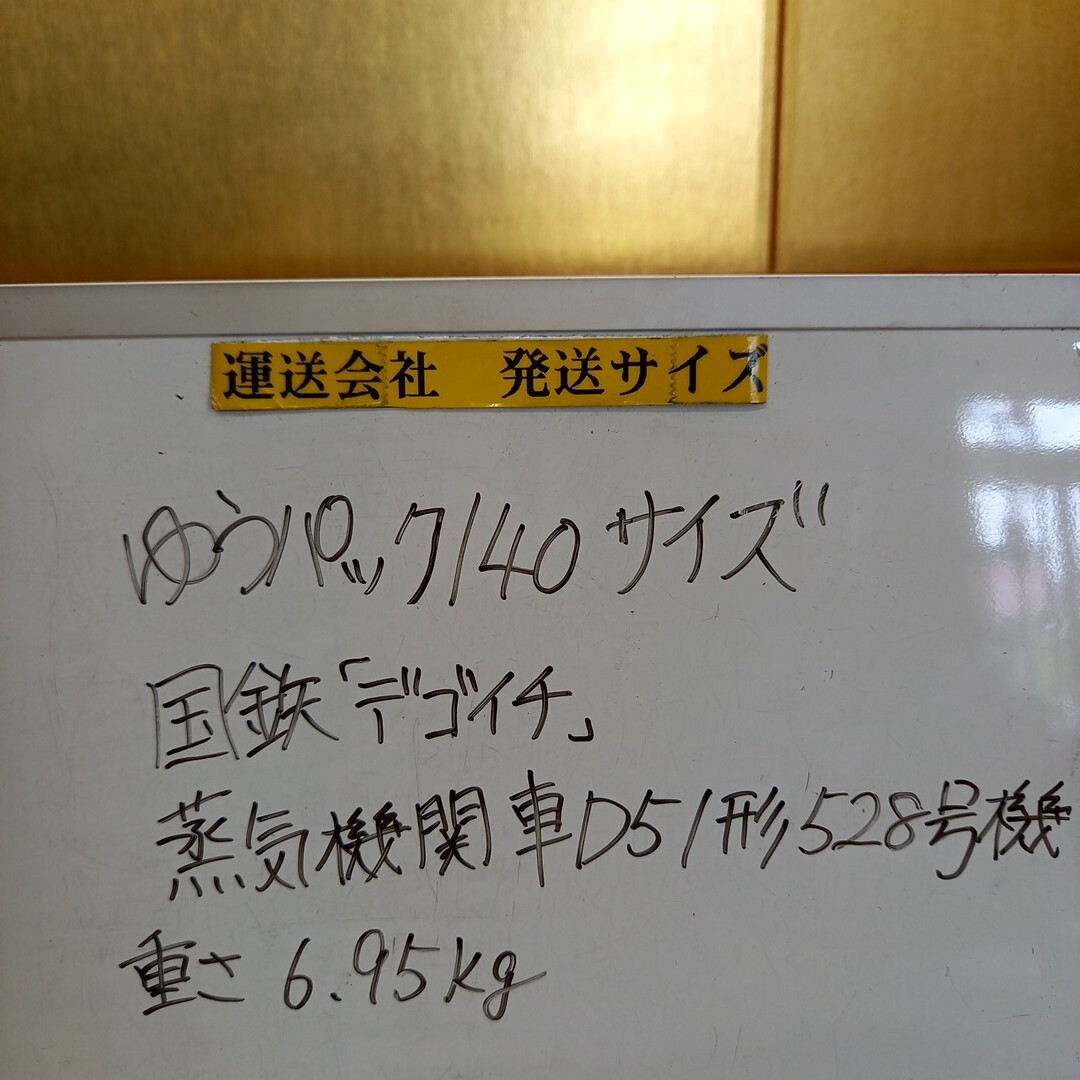 運送会社　発送サイズ
ゆうパック140サイズ
国鉄「デゴイチ」
蒸気機関車D51形528号機
重さ 6.95kg